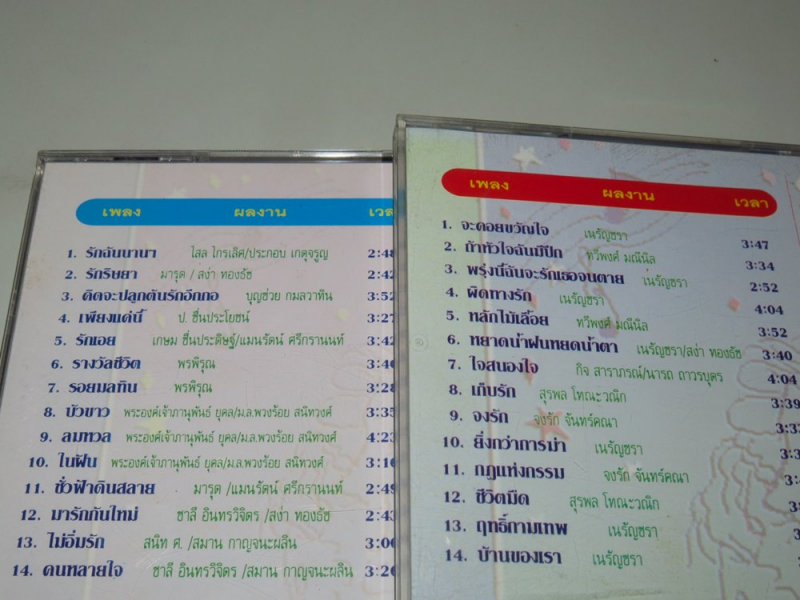 เพลง ผลงาน
1. รักฉันนานา ไสล ไกรเลิศ/ประกอบ เกตุจรูญ
2. รักริษยา มารุต / สง่า ทองธัช
3. คิดจะปลูกต้นรักอีกกอ บุญช่วย กมลวาทิน
4. เพียงแค่นี้ ป. ชื่นประโยชน์
5. รักเอย เกษม ชื่นประดิษฐ์/แมนรัตน์ ศรีกรานนท์
6. รางวัลชีวิต พรพิรุณ
7. รอยมลทิน พรพิรุณ
8. บัวขาว พระองค์เจ้าภานุพันธ์ ยุคล/ม.ล.พวงร้อย สนิทวงศ์
9. ลมหวล พระองค์เจ้าภานุพันธ์ ยุคล/ม.ล.พวงร้อย สนิทวงศ์ 4:23
10. ในฝัน พระองค์เจ้าภานุพันธ์ ยุคล/ม.ล.พวงร้อย สนิทวงศ์
11. ชั่วฟ้าดินสลาย มารุต /แมนรัตน์ ศรีกรานนท์
12. มารักกันใหม่ ชาลี อินทรวิจิตร /สง่า ทองธัช 2:43
13. ไม่อิ่มรัก สนิท ศ. /สมาน กาญจนะผลิน
14. คนหลายใจ ชาลี อินทรวิจิตร /สมาน กาญจนะผลิน
เพลง ผลงาน เวลา
1. จะคอยขวัญใจ เนรัญชรา 3:47
2. ถ้าหัวใจฉันมีปีก ทวีพงศ์ มณีนิล 3:34
3. พรุ่งนี้ฉันจะรักเธอจนตาย เนรัญชรา 2:52
4. ผิดทางรัก เนรัญชรา 4:04
5. หลักไม้เลื้อย ทวีพงศ์ มณีนิล 3:52
6. หยาดน้ำฝนหยดน้ำตา เนรัญชรา/สง่า ทองธัช 3:40
7. ใจสนองใจ กิจ สาราภรณ์/นารถ ถาวรบุตร 4:04
8. เก็บรัก สุรพล โทณะวณิก 3:39
9. จงรัก จงรัก จันทร์คณา
10. ยิ่งกว่าการฆ่า เนรัญชรา
11. กฎแห่งกรรม จงรัก จันทร์คณา
12. ชีวิตมืด สุรพล โทณะวณิก
13. ฤทธิ์กามเทพ เนรัญชรา
14. บ้านของเรา เนรัญชรา